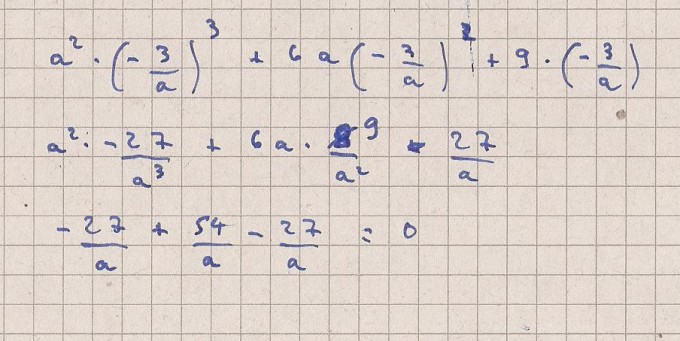 a² · (- 3/a)³ + 6a (- 3/a)² + 9 · (- 3/a)
a² · - 27/a³ + 6a · 9/a² - 27/a
- 27/a + 54/a - 27/a = 0